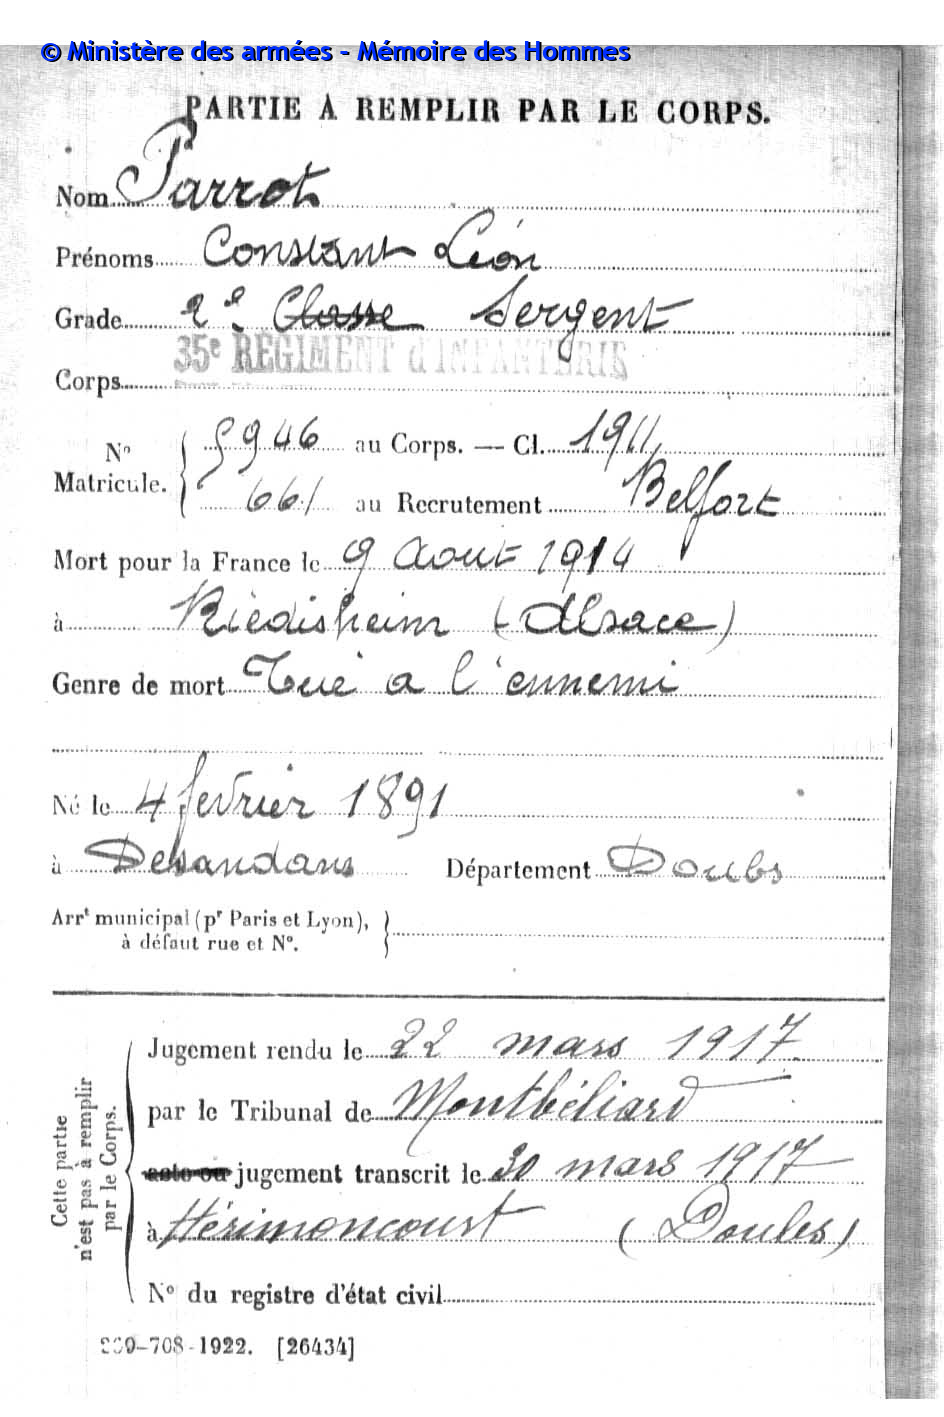 © Ministère des armées - Mémoire des Hommes
PARTIE À REMPLIR PAR LE CORPS.
Nom Parrot
Prénoms Constant Léon
Grade 2e Classe Sergent
35e RÉGIMENT d'INFANTERIE
Corps
N° Matricule. 5946 au Corps. — Cl. 1911
661 au Recrutement Belfort
Mort pour la France le 9 Aout 1914
à Riedisheim (Alsace)
Genre de mort Tué a l'ennemi
Né le 4 fevrier 1891
à Desandans Département Doubs
Arrt municipal (pr Paris et Lyon),
à défaut rue et N°.
Cette partie
n'est pas à remplir
par le Corps.
Jugement rendu le 22 mars 1917
par le Tribunal de Montbéliard
acte ou jugement transcrit le 30 mars 1917
à Hérimoncourt (Doubs)
N° du registre d'état civil
-708-1922. [26434]